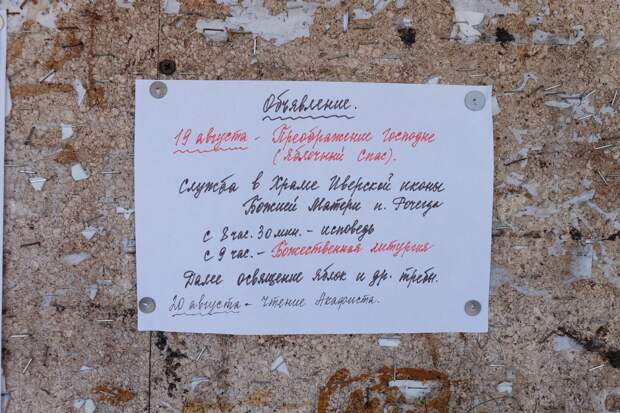 Объявление.
19 августа - Преображение Господне
(Яблочный Спас).
Служба в Храме Иверской иконы
Божией Матери п. Рочегда
с 8 час. 30 мин. - исповедь
с 9 час. - Божественная литургия
Далее освящение яблок и др. требы.
20 августа - Чтение Акафиста.